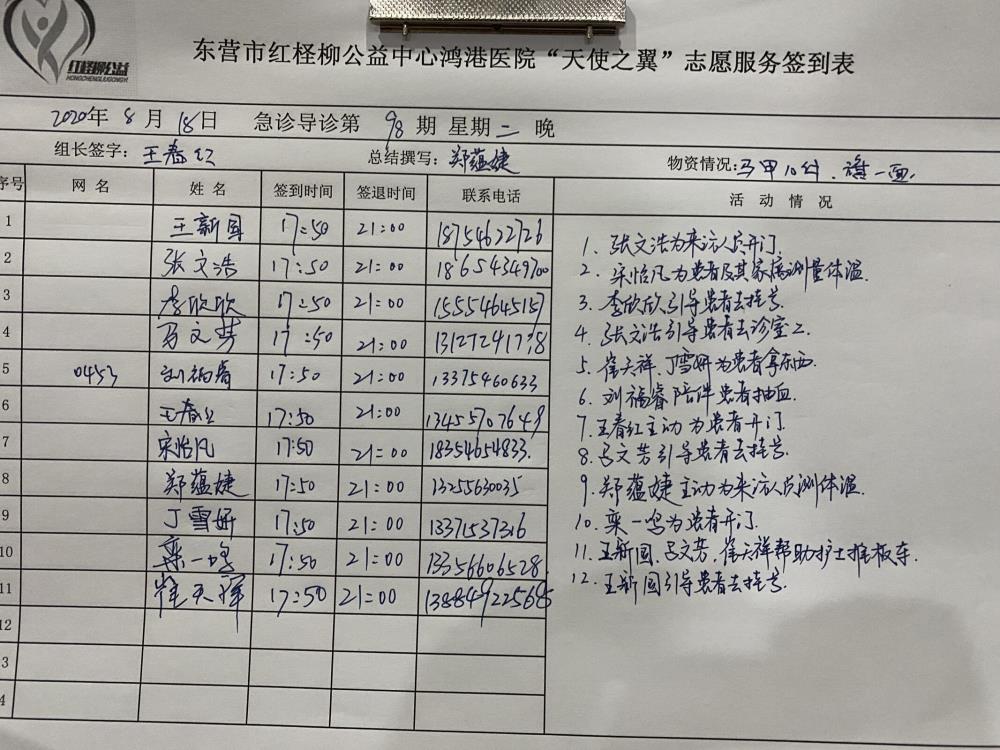 红柽柳公益
HONGCHENGLIUGONGYI
东营市红柽柳公益中心鸿港医院“天使之翼”志愿服务签到表
2020年 8 月 18日 急诊导诊第 98 期 星期二 晚
组长签字:王春红 总结撰写:郑蕴婕 物资情况:马甲10件、旗一面.
序号 网名 姓名 签到时间 签退时间 联系电话 活动情况
1 王新国 17:50 21:00 18754622726
2 张文浩 17:50 21:00 18654349700
3 李欣欣 17:50 21:00 15554645157
4 吕文芳 17:50 21:00
5 0453 刘福睿 17:50 21:00 13375460633
6 王春红 17:50 21:00 13455707649
7 宋怡凡 17:50 21:00 18354654833.
8 郑蕴婕 17:50 21:00 13255630035
9 丁雪妍 17:50 21:00 13371537316
10 栾一鸣 17:50 21:00 13356606528.
11 17:50 21:00
12
3
4
1. 张文浩为来访人员开门.
2. 宋怡凡为患者及其家属测量体温.
3. 李欣欣引导患者去挂号.
4. 张文浩引导患者去诊室二.
5. 崔天祥、丁雪妍为患者拿东西.
6. 刘福睿陪伴患者抽血.
7. 王春红主动为患者开门.
8. 吕文芳引导患者去挂号.
9. 郑蕴婕主动为来访人员测体温.
10. 栾一鸣为患者开门.
11. 王新国、吕文芳、崔天祥帮助护士推板车.
12. 王新国引导患者去挂号.